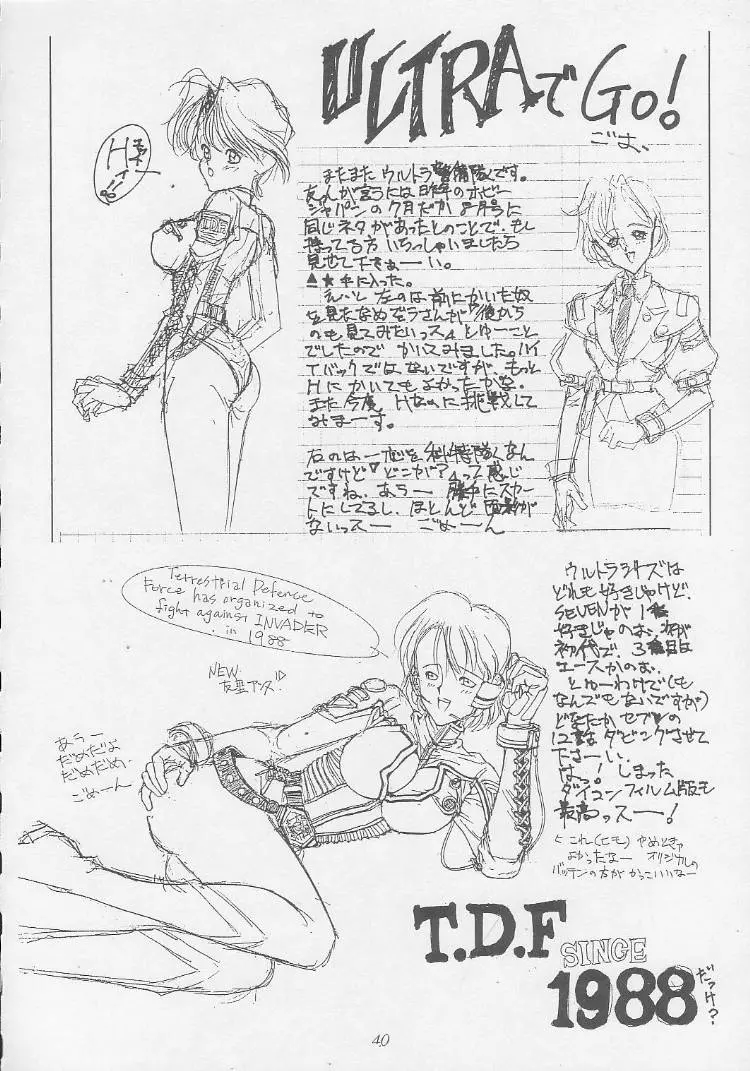 ULTRAでGo!
ごお、
Hィー!!
またまた ウルトラ警備隊くです。
友人が言うには昨年のホビー
ジャパンの7月だか8月号に
同じネタがあったとのことで、もし
持ってる方 いらっしゃいましたら
見せて下さぁーい。
▲★手に入った。
えーと 左のは前にかいた奴
を見たなめぞうさんが「後から
のも見てみたいっス」とゆーこと
でしたので かいてみました。ハイ
レバックではないですが、もっと
Hにかいてもよかったかな。
また今度 Hなのに挑戦して
みまーす。
右のは一応を科特隊くなん
ですけど「どこが?」って感じ
ですね、あうー 勝手にスカー
トにしてるし、ほとんど面影が
ないっスー ごめーん
Terrestrial Defence
Force has organized to
fight against INVADER
in 1988
NEW
友里アンヌ!
あうー
だめだよ
だめだめ、
ごめーん
ウルトラシリーズは
どれも好きじゃけど、
SEVENが1番
好きじゃのお、次が
初代で、3番目は
エースかのお、
とゆーわけで(も
なんでもないですが)
どなたか セブンの
12話 ダビングさせて
下さーい、
はっ!しまった
ダイコンフィルム版も
最高っスー!
これ(ヒモ) やめときゃ
よかったなー オリジナルの
バッテンの方が かっこいいなー
T.D.F
SINCE
1988
だっけ?
40